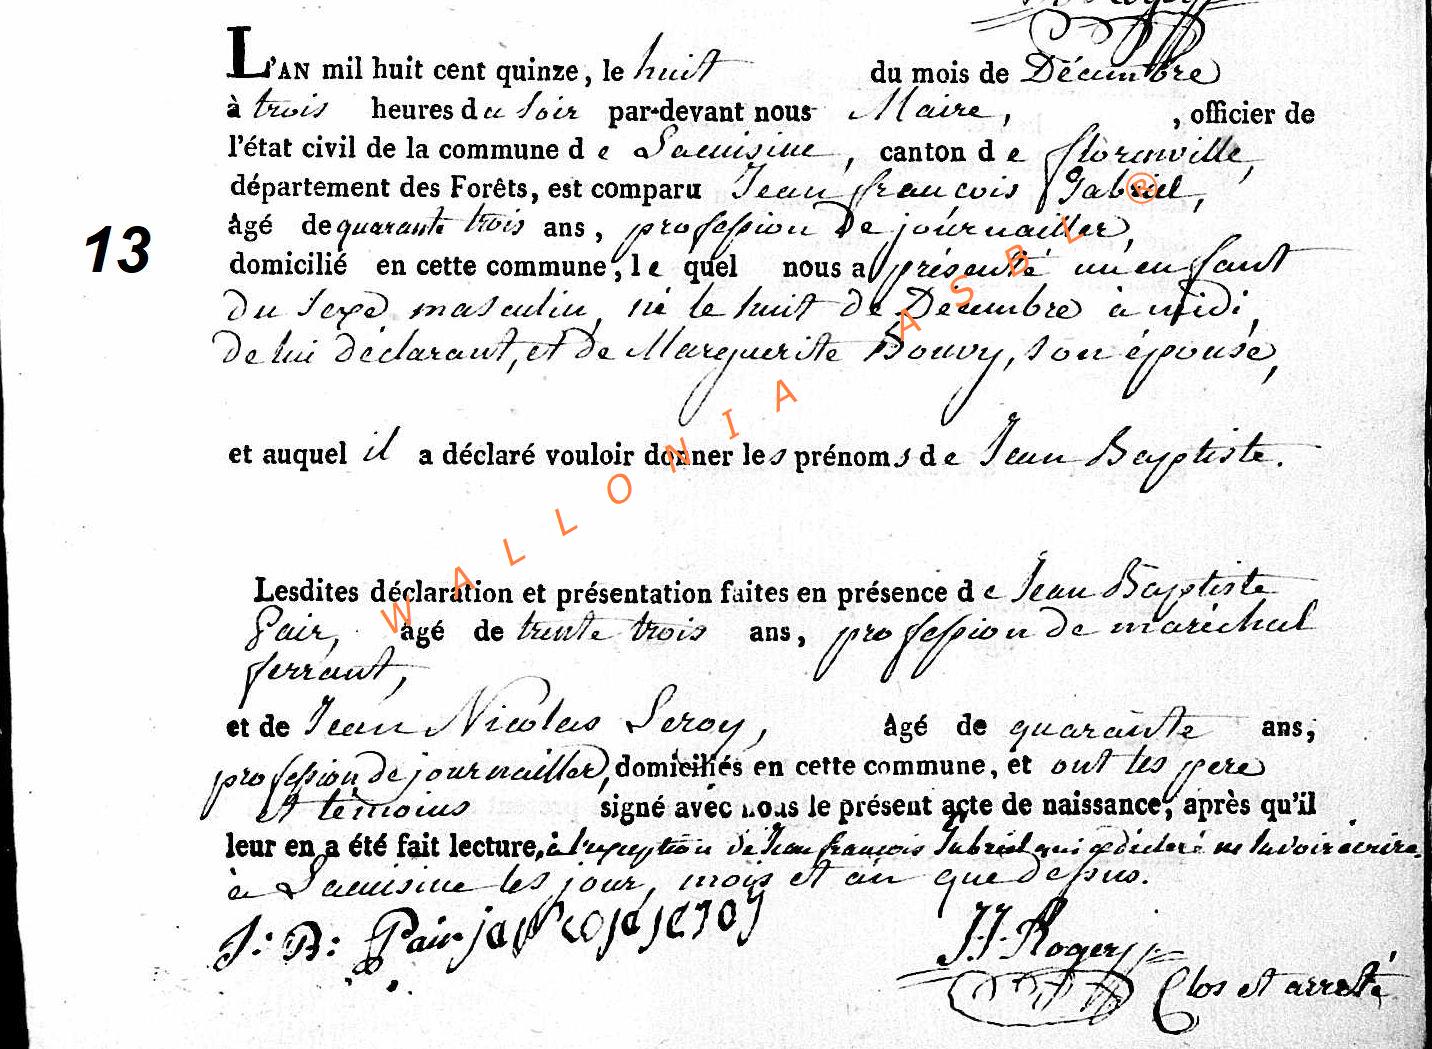 L'AN mil huit cent quinze, le huit du mois de Décembre
à trois heures du soir par-devant nous Maire, , officier de
l'état civil de la commune de Lacuisine, canton de florenville,
département des Forêts, est comparu Jean françois Gabriel,
âgé de quarante trois ans, profession De journailler,
13
domicilié en cette commune, le quel nous a présenté un enfant
Du Sexe masculin, né le huit de Décembre à midi,
De lui déclarant, et de Marguerite Bouvy, son épouse,
et auquel il a déclaré vouloir donner les prénoms de Jean Baptiste.
Lesdites déclaration et présentation faites en présence de Jean Baptiste
Pair, âgé de trente trois ans, profession De maréchal
ferrant,
et de Jean Nicolas Leroy, âgé de quarante ans,
profession de journailler, domiciliés en cette commune, et ont les pere
et témoins signé avec nous le présent acte de naissance, après qu'il
leur en a été fait lecture, à l'exception de Jean françois Gabriel qui a déclaré ne savoir écrire.
à Lacuisine les jour, mois et an que Dessus.
J: B: Pair leroy J.J. Rogery
Clos et arreté
WALLONIA ASBL ®